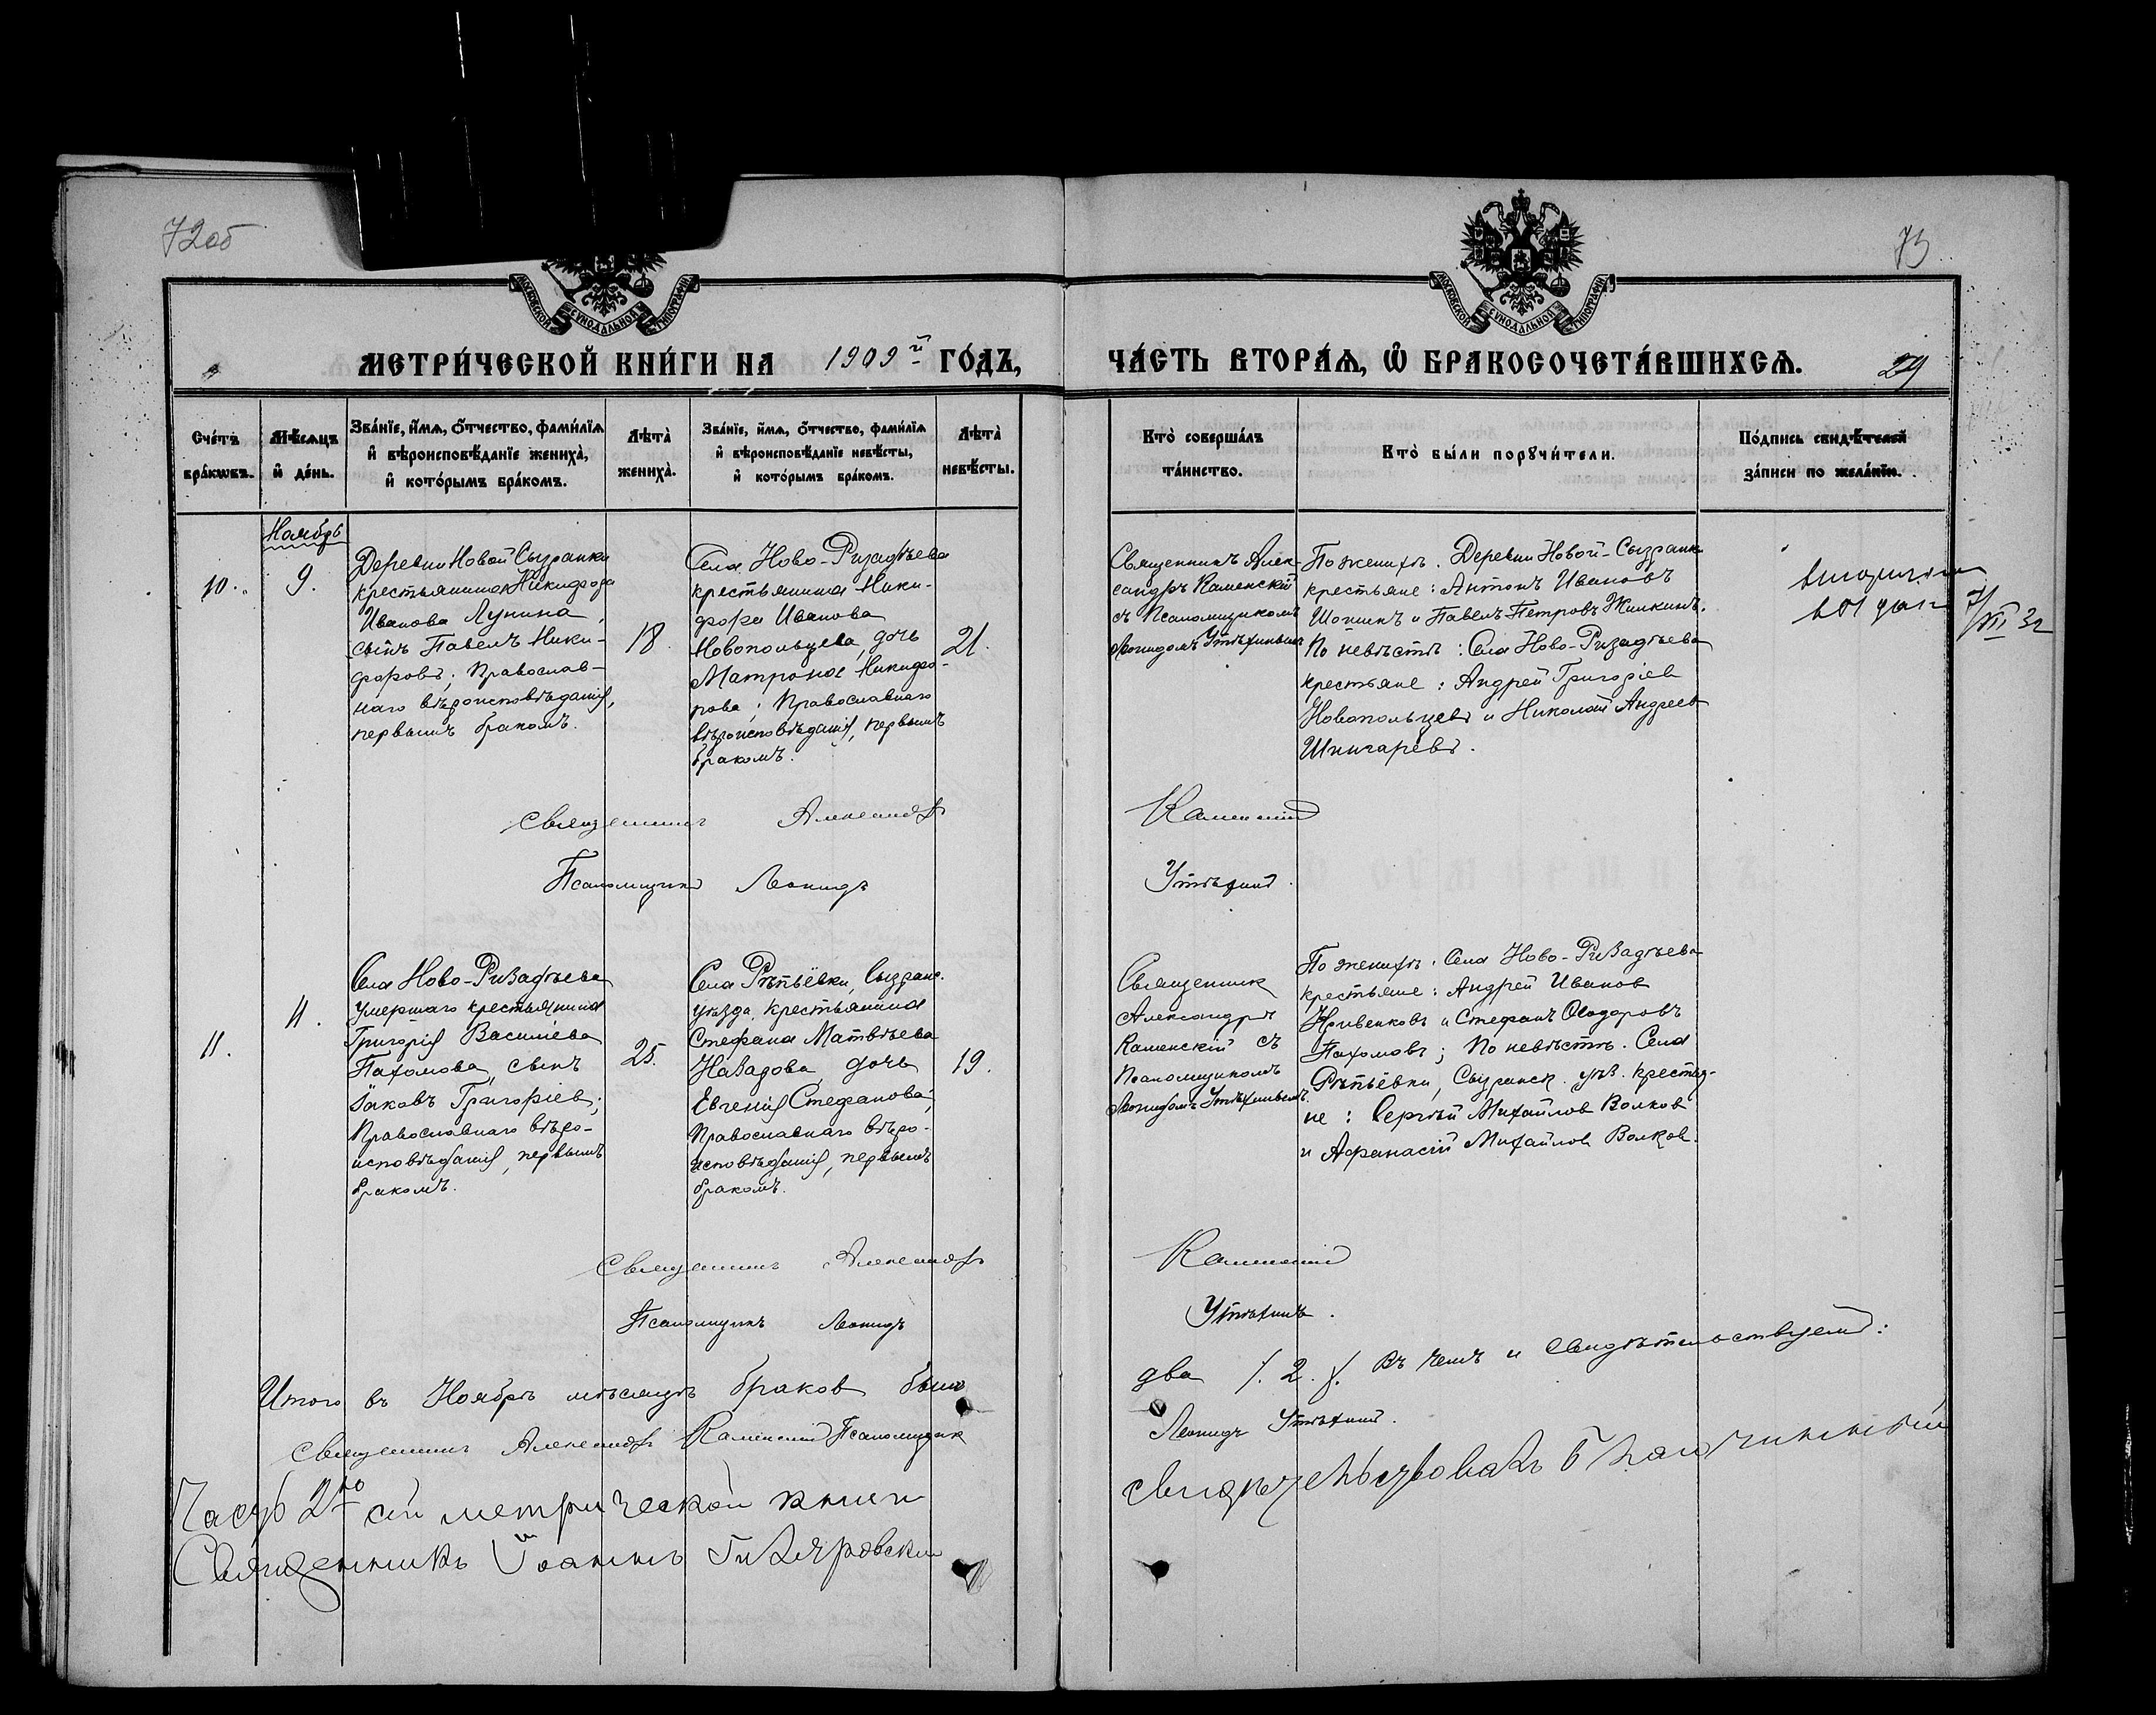 72об
73
МОСКОВСКОЙ СѴНОДАЛЬНОЙ ТИПОГРАФІИ
МОСКОВСКОЙ СѴНОДАЛЬНОЙ ТИПОГРАФІИ
МЕТРИ́ЧЕСКОЙ КНИ́ГИ НА 1909й ГО́ДЪ,
ЧА́СТЬ ВТОРА́Ѧ, Ѽ БРАКОСОЧЕТА́ВШИХСѦ.
29
Сче́тъ
бра́кѡвъ.
Мѣ́сяцъ
и҆ де́нь.
Зва́нїе, и҆́мѧ, ѻ҆́тчество, фами́лїѧ
и҆ вѣроисповѣ́данїе жениха̀,
и҆ кото́рымъ бра́комъ.
Лѣта̀
жениха̀.
Зва́нїе, и҆́мѧ, ѻ҆́тчество, фами́лїѧ
и҆ вѣроисповѣ́данїе невѣ́сты,
и҆ кото́рымъ бра́комъ.
Лѣта̀
невѣ́сты.
Кто̀ соверша́лъ
та́инство.
Кто̀ бы́ли порꙋчи́тели.
По́дпись свидѣ́телей
за́писи по жела́нїю.
Ноябрь
10.
9.
Деревни Новой Сызранки
крестьянина Никифора
Иванова Лунина,
сынъ Павелъ Ники-
форовъ; Православ-
наго вѣроисповѣданія,
первымъ бракомъ.
18.
Села Ново-Ризадѣева
крестьянина Ники-
фора Иванова
Новопольцева, дочь
Матрона Никифо-
рова; Православнаго
вѣроисповѣданія, первымъ
бракомъ.
21.
Священникъ Алек-
сандръ Каменскій
съ Псаломщикомъ
Леонидомъ Утѣхинымъ
По женихѣ: Деревни Новой-Сызранки
крестьяне: Антонъ Ивановъ
Шопинъ и Павелъ Петровъ Жилкинъ.
По невѣстѣ: Села Ново-Ризадѣева
крестьяне: Андрей Григоріев
Новопольцевъ и Николай Андреев
Шничаревъ.
7/XII 32
Священникъ Александръ Каменскій
Псаломщикъ Леонидъ Утѣхинъ.
11.
11.
Села Ново-Ризадѣева
умершаго крестьянина
Григорія Василіева
Пахомова, сынъ
Іаковъ Григоріев;
Православнаго вѣро-
исповѣданія, первымъ
бракомъ.
25.
Села Рѣпьёвки, Сызранс.
уѣзда, крестьянина
Стефана Матвѣева
Назадова, дочь
Евгенія Стефанова;
Православнаго вѣро-
исповѣданія, первымъ
бракомъ.
19.
Священник
Александръ
Каменскій съ
Псаломщикомъ
Леонидомъ Утѣхинымъ.
По женихѣ: Села Ново-Ризадѣева
крестьяне: Андрей Иванов
Кривенковъ и Стефанъ Ѳеодоровъ
Пахомовъ; По невѣстѣ. Села
Рѣпьёвки, Сызранск. уѣз. крестья-
не: Сергѣй Михайлов Волков
и Афанасій Михайлов Волков.
Священникъ Александръ Каменскій
Псаломщикъ Леонидъ Утѣхинъ.
Итого въ Ноябрѣ мѣсяцѣ браков было два /. 2. /. Въ чемъ и свидѣтельствуемъ:
Священникъ Александръ Каменскій Псаломщик Леонидъ Утѣхинъ.
Часть 2ю сей метрической книги свидѣтельствовалъ благочинный
Священникъ Іоаннъ Гиляровскій